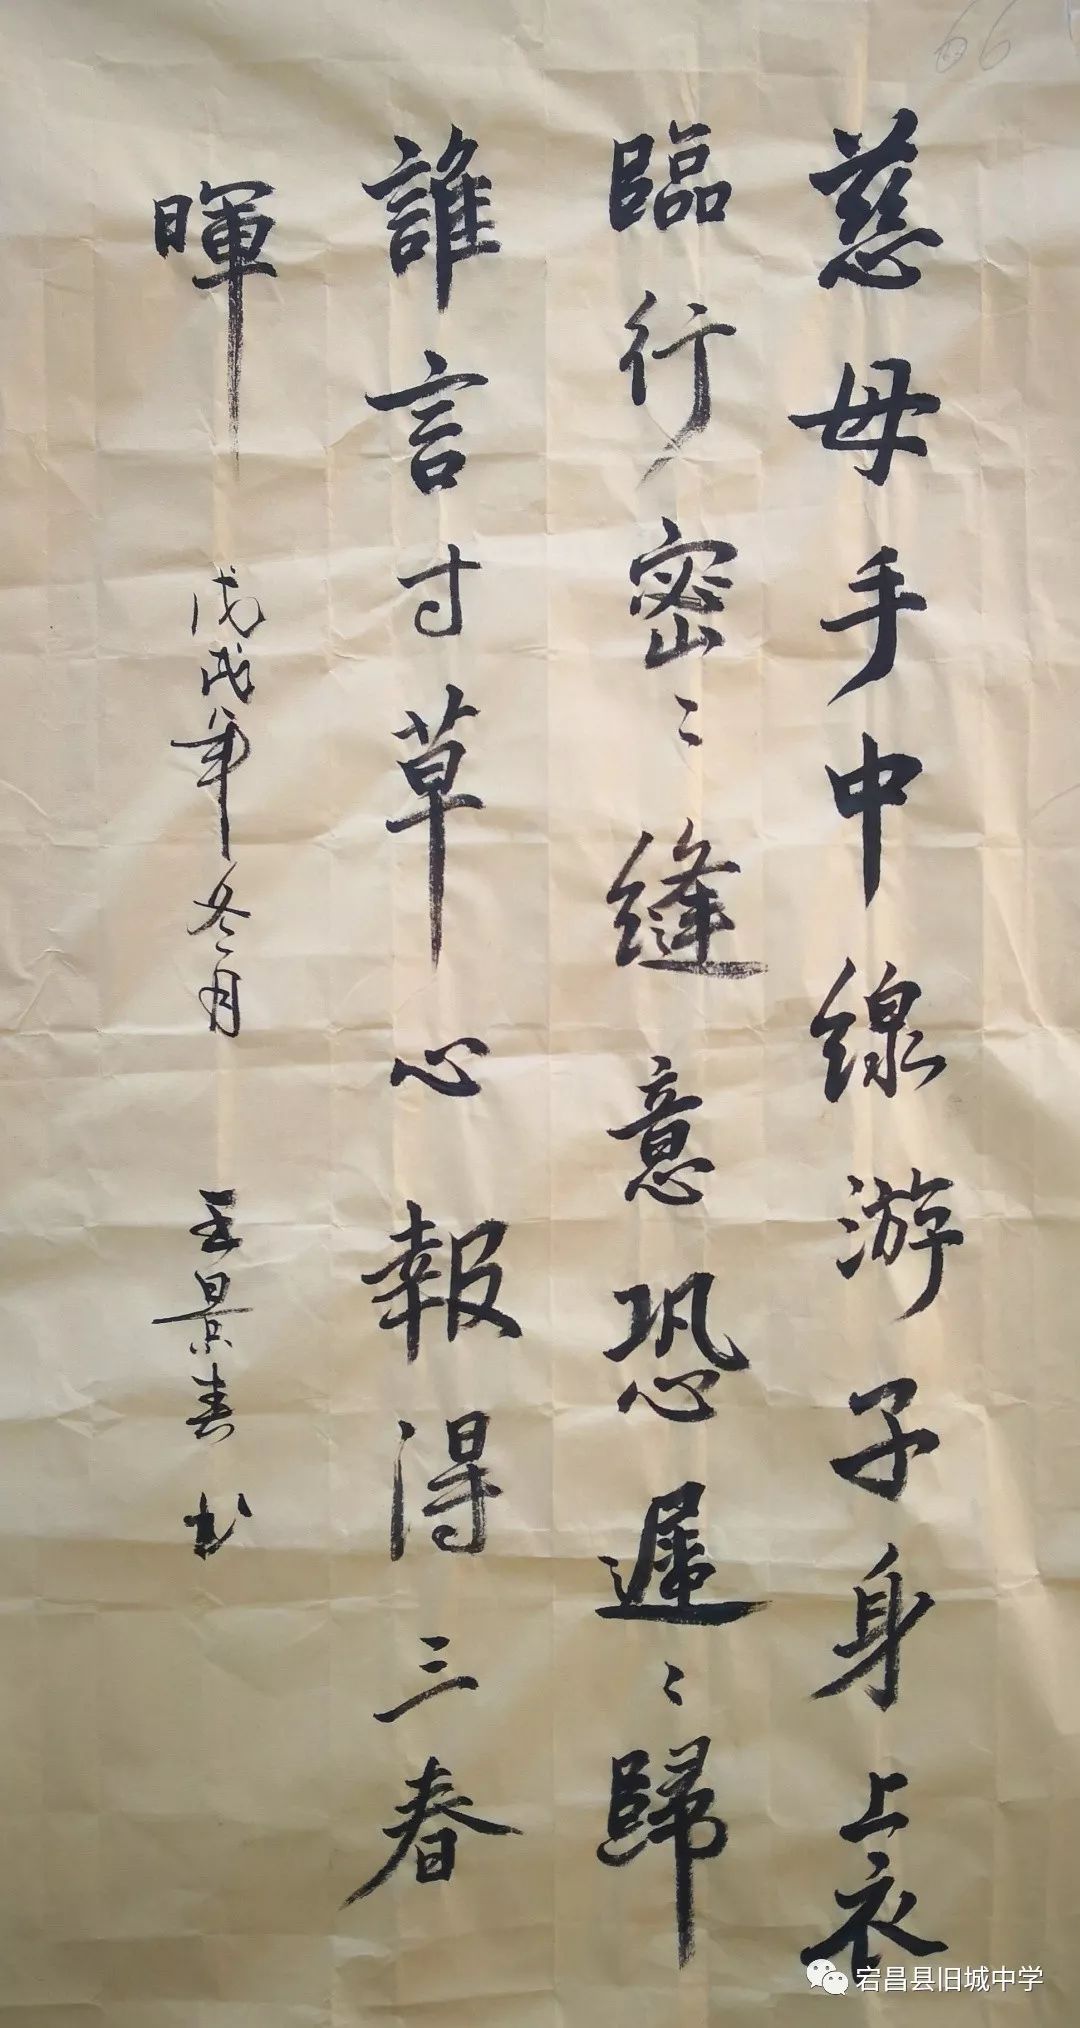 慈母手中線游子身上衣
臨行密〻縫意恐遲〻歸
誰言寸草心報得三春
暉
戊戌年冬月 王景春书
66
宕昌县旧城中学